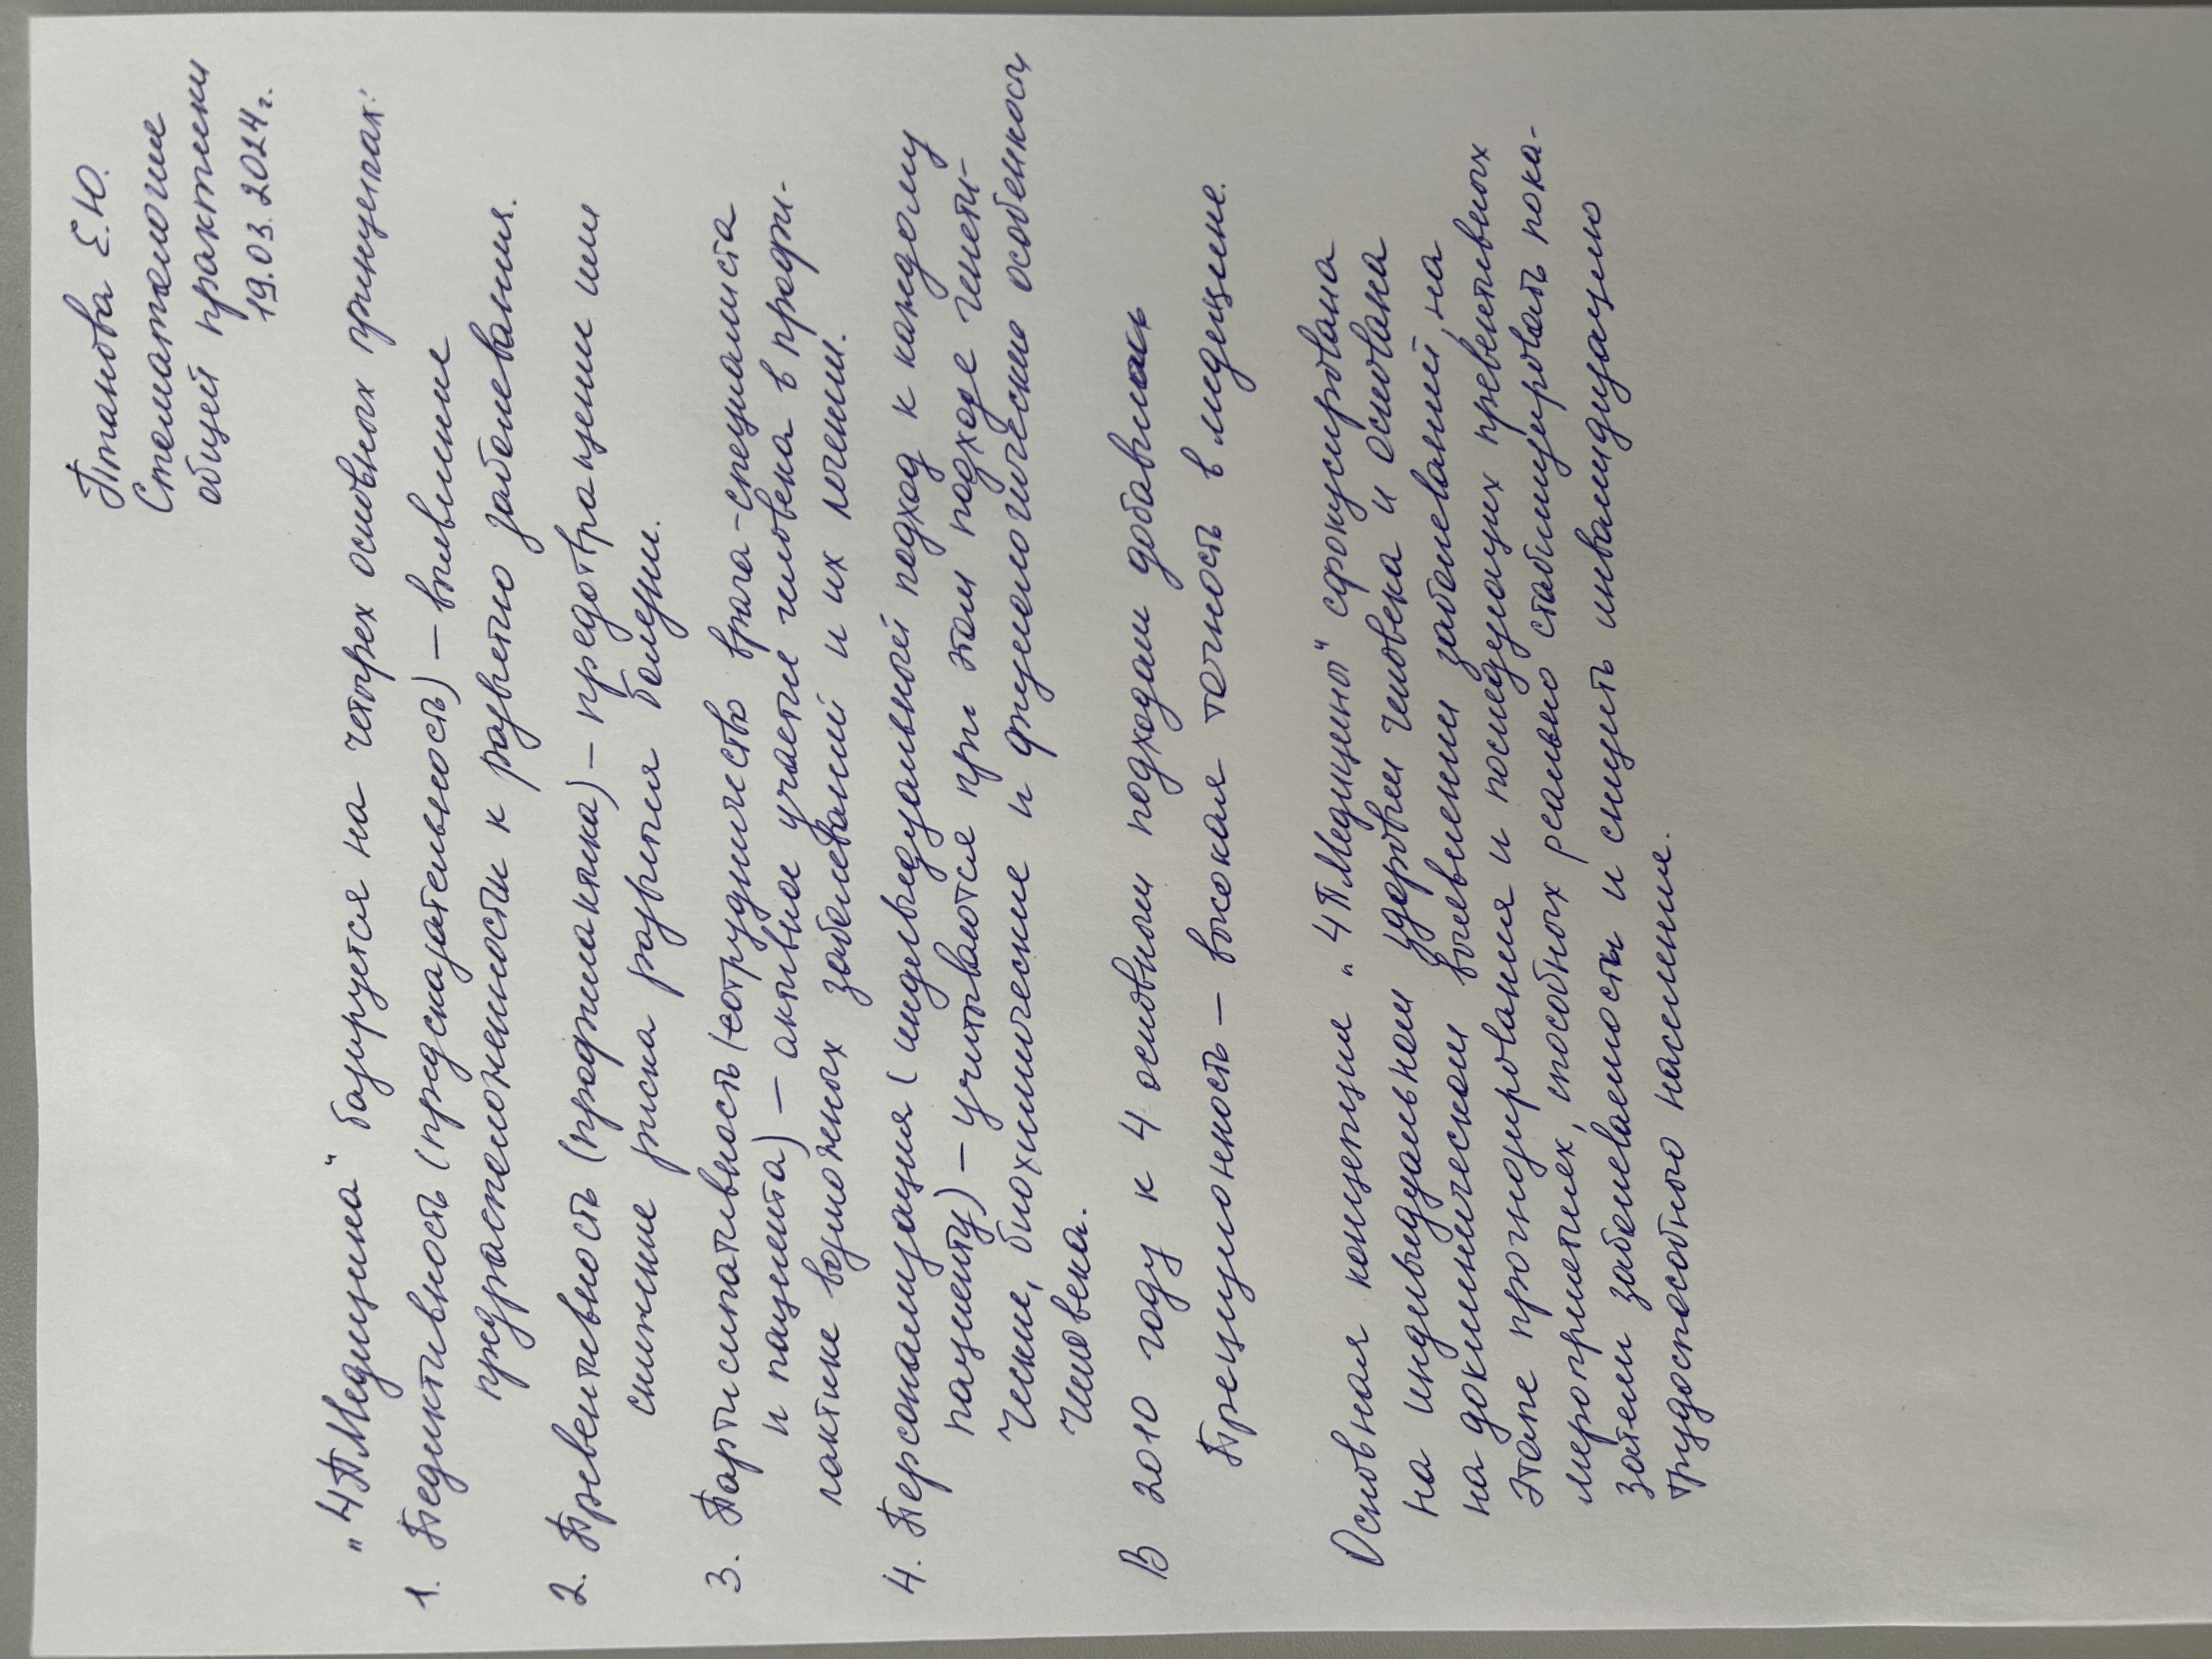 Птанова Е.Ю.
Стоматология
общей практики
19.03.2024г.
„4П Медицина" базируется на четырех основных принципах:
1. Педиктивность (предсказательность) – выявление
предрасположенности к развитию заболевания.
2. Превентивность (профилактика) – предотвращение или
снижение риска развития болезни.
3. Партисипативность (сотрудничество врача-специалиста
и пациента) – активное участие человека в профи-
лактике возможных заболеваний и их лечении.
4. Персонализация (индивидуальный подход к каждому
пациенту) – учитываются при этом подходе генети-
ческие, биохимические и физиологические особенности
человека.
В 2010 году к 4 основным подходам добавилась
Прецизионность – высокая точность в медицине.
Основная концепция „4П Медицины" сфокусирована
на индивидуальном здоровьи человека и основана
на доклиническом выявлении заболеваний, на
этапе прогнозирования и последующих превентивных
мероприятиях, способных реально стабилизировать пока-
затели заболеваемости и снизить инвалидизацию
трудоспособного населения.